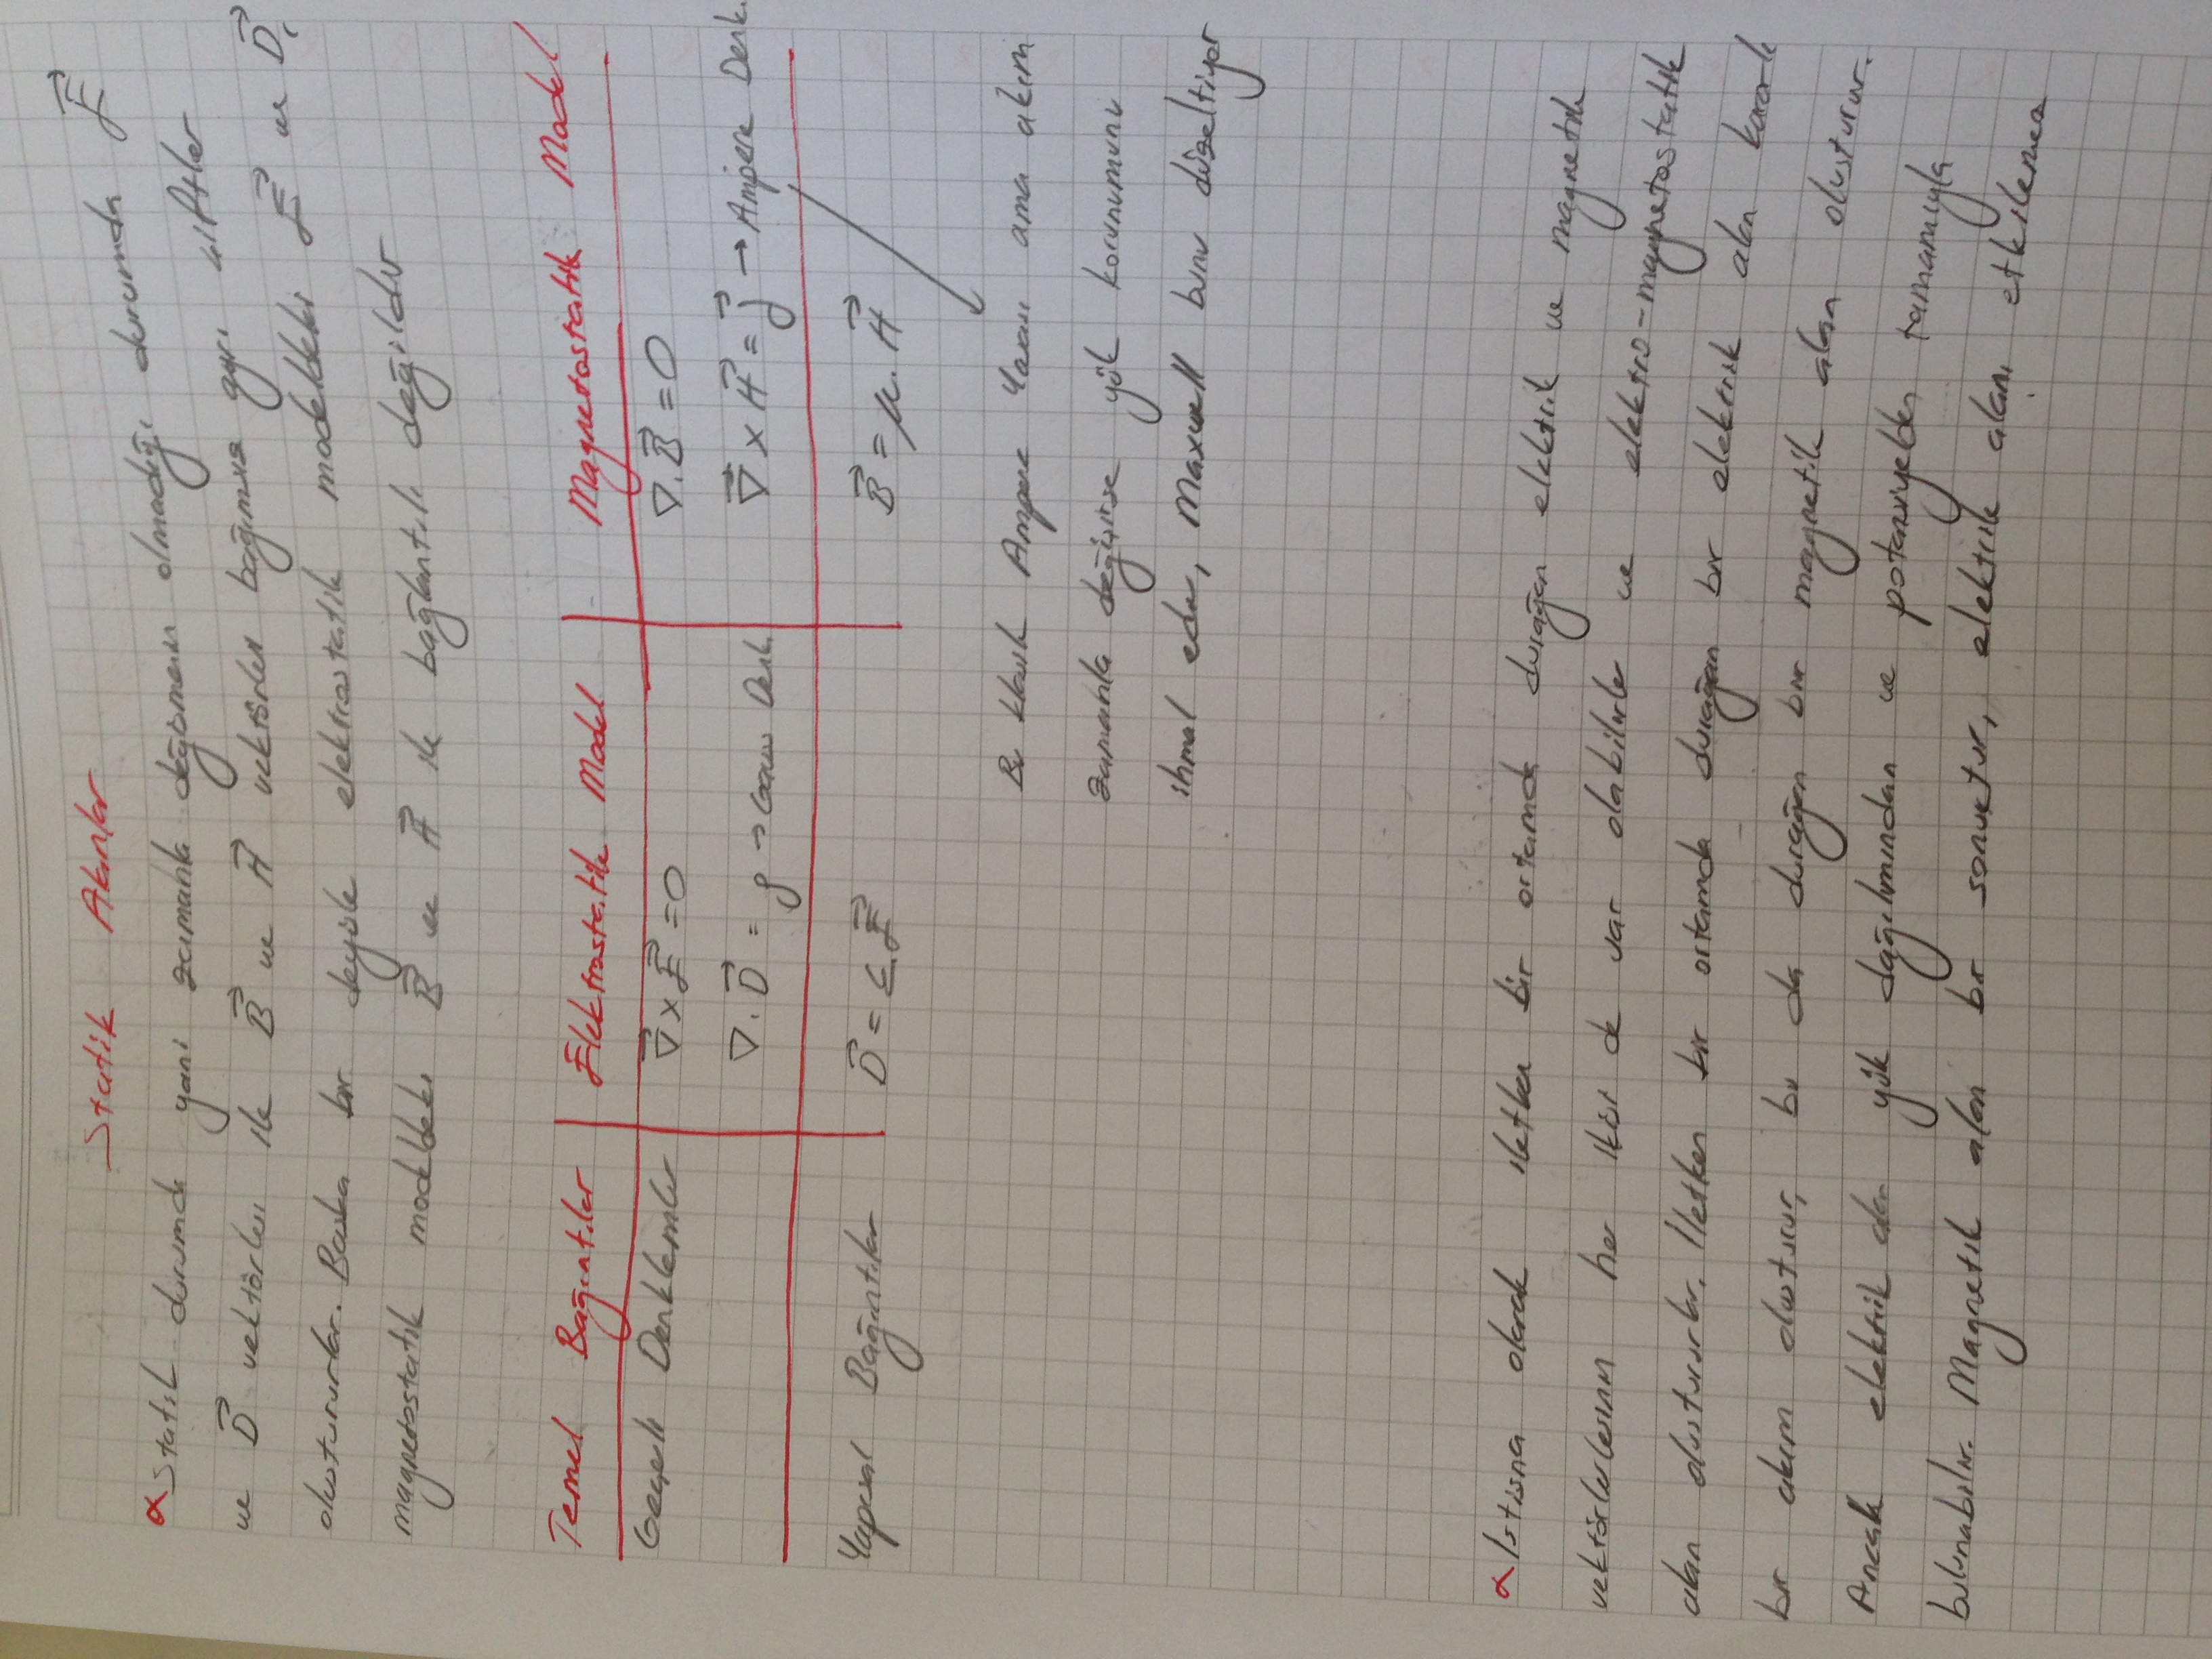 Statik Alanlar
∝ Statik durumda yani zamanla değişmenin olmadığı durumda E⃗
ve D⃗ vektörleri ile B⃗ ve H⃗ vektörleri bağımsız ayrı çiftler
oluştururlar. Başka bir deyişle elektrostatik modeldeki E⃗ ve D⃗,
magnetostatik modeldeki B⃗ ve H⃗ ile bağlantılı değildir
Temel Bağıntılar | Elektrostatik Model | Magnetostatik Model
Geçerli Denklemler | ∇⃗ x E⃗ = 0 | ∇ . B⃗ = 0
∇ . D⃗ = ρ → Gauss Denk. | ∇⃗ x H⃗ = j⃗ → Ampere Denk.
Yapısal Bağıntılar | D⃗ = ε.E⃗ | B⃗ = μ. H⃗
Bu klasik Ampere Yasası ama akım
zamanla değişirse yük korunumunu
ihmal eder, Maxwell bunu düzeltiyor
∝ İstisna olarak iletken bir ortamda durağan elektrik ve magnetik
vektörlerlerinin her ikisi de var olabilirler ve elektro-magnetostatik
alan oluştururlar. İletken bir ortamda durağan bir elektrik alan kararlı
bir akım oluşturur, bu da durağan bir magnetik alan oluşturur.
Ancak elektrik alan yük dağılımından ve potansiyelden tamamıyla
bulunabilir. Magnetik alan bir sonuçtur, elektrik alanı etkilemez